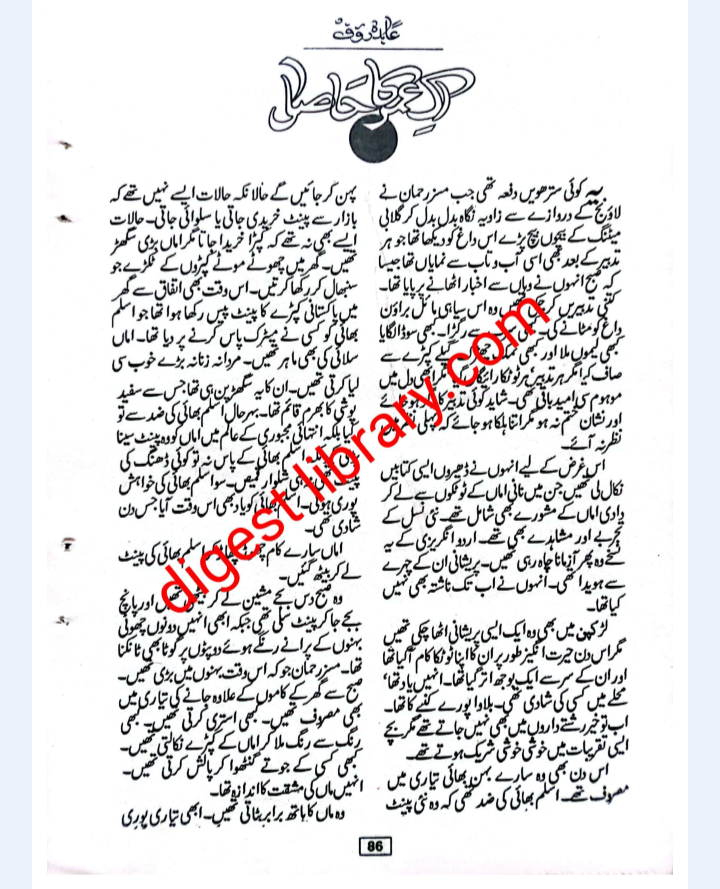 عابدہ رؤف
اک عمر کا حاصل
یہ کوئی سترھویں دفعہ تھی جب مسز رحمان نے
لاؤنج کے دروازے سے زاویہ نگاہ بدل بدل کر گلابی
میٹنگ کے بیچوں بیچ پڑے اس داغ کو دیکھا تھا جو ہر
تدبیر کے بعد بھی اسی آب و تاب سے نمایاں تھا جیسا
کہ صبح انہوں نے وہاں سے اخبار اٹھانے پر پایا تھا۔
کتنی تدبیریں کر چکی تھیں وہ اس سیاہی مائل براؤن
داغ کو مٹانے کی۔ سے رگڑا۔ کبھی سوڈا لگایا
کبھی لیموں ملا اور کبھی نمک گیلے کپڑے سے
صاف کیا مگر ہر تدبیر، ہر ٹوٹکا رائیگاں مگر ابھی دل میں
موہوم سی امید باقی تھی۔ شاید کوئی تدبیر ہو جائے
اور نشان ختم نہ ہو مگر اتنا ہلکا ہو جائے کہ پہلی نظر میں
نظر نہ آئے۔
اس غرض کے لیے انہوں نے ڈھیروں ایسی کتابیں
نکال لی تھیں جن میں نانی اماں کے ٹوٹکوں سے لے کر
دادی اماں کے مشورے بھی شامل تھے۔ نئی نسل کے
تجربے اور مشاہدے بھی تھے۔ اردو انگریزی کے یہ
نسخے وہ پھر آزمانا چاہ رہی تھیں۔ پریشانی ان کے چہرے
سے ہویدا تھی۔ انہوں نے اب تک ناشتہ بھی نہیں
کیا تھا۔
لڑکپن میں بھی وہ ایک ایسی پریشانی اٹھا چکی تھیں
مگر اس دن حیرت انگیز طور پر ان کا اپنا ٹوٹکا کام آ گیا تھا
اور ان کے سر سے ایک بوجھ اتر گیا تھا۔ انہیں یاد تھا،
محلے میں کسی کی شادی تھی۔ بلاوا پورے کنبے کا تھا۔
اب تو خیر رشتے داروں میں بھی نہیں جاتے تھے مگر بچے
ایسی تقریبات میں خوشی خوشی شریک ہوتے تھے۔
اس دن بھی وہ سارے بہن بھائی تیاری میں
مصروف تھے۔ اسلم بھائی کی ضد تھی کہ وہ نئی پینٹ
پہن کر جائیں گے حالانکہ حالات ایسے نہیں تھے کہ
بازار سے پینٹ خریدی جاتی یا سلوائی جاتی۔ حالات
ایسے بھی نہ تھے کہ کپڑا خریدا جاتا مگر اماں بڑی سگھڑ
تھیں۔ گھر میں چھوٹے موٹے کپڑوں کے ٹکڑے جو
سنبھال کر رکھا کرتیں۔ اس وقت بھی اتفاق سے گھر
میں پاکستانی کپڑے کا پینٹ پیس رکھا ہوا تھا جو اسلم
بھائی کو کسی نے میٹرک پاس کرنے پر دیا تھا۔ اماں
سلائی کی بھی ماہر تھیں۔ مردانہ زنانہ بڑے خوب سی
لیا کرتی تھیں۔ ان کا یہ سگھڑپن ہی تھا جس سے سفید
پوشی کا بھرم قائم تھا۔ بہرحال اسلم بھائی کی ضد سے تو
بلکہ انتہائی مجبوری کے عالم میں اماں کو وہ پینٹ سینا
پڑی اسلم بھائی کے پاس نہ تو کوئی ڈھنگ کی
پینٹ تھی نہ ہی شلوار قمیص۔ سو اسلم بھائی کی خواہش
پوری ہوئی۔ اسلم بھائی کو یاد بھی اس وقت آیا جس دن
شادی تھی۔
اماں سارے کام چھوڑ اسلم بھائی کی پینٹ
لے کر بیٹھ گئیں۔
وہ صبح دس بجے مشین لے کر بیٹھی تھیں اور پانچ
بجے جا کر پینٹ سلی تھی جبکہ ابھی انہیں دونوں چھوٹی
بہنوں کے پرانے رنگے ہوئے دوپٹوں پر گوٹا بھی ٹانکنا
تھا۔ مسز رحمان جو کہ اس وقت بہنوں میں بڑی تھیں۔
صبح سے گھر کے کاموں کے علاوہ جانے کی تیاری میں
بھی مصروف تھیں۔ کبھی استری کرتی تھیں۔ کبھی
رنگ سے رنگ ملا کر اماں کے کپڑے نکالتی تھیں۔
کبھی کسی کے جوتے گنٹھوا کر پالش کرتی تھیں۔
انہیں ماں کی مشقت کا اندازہ تھا۔
وہ ماں کا ہاتھ برابر بٹاتی تھیں۔ ابھی تیاری پوری
86
digest library.com